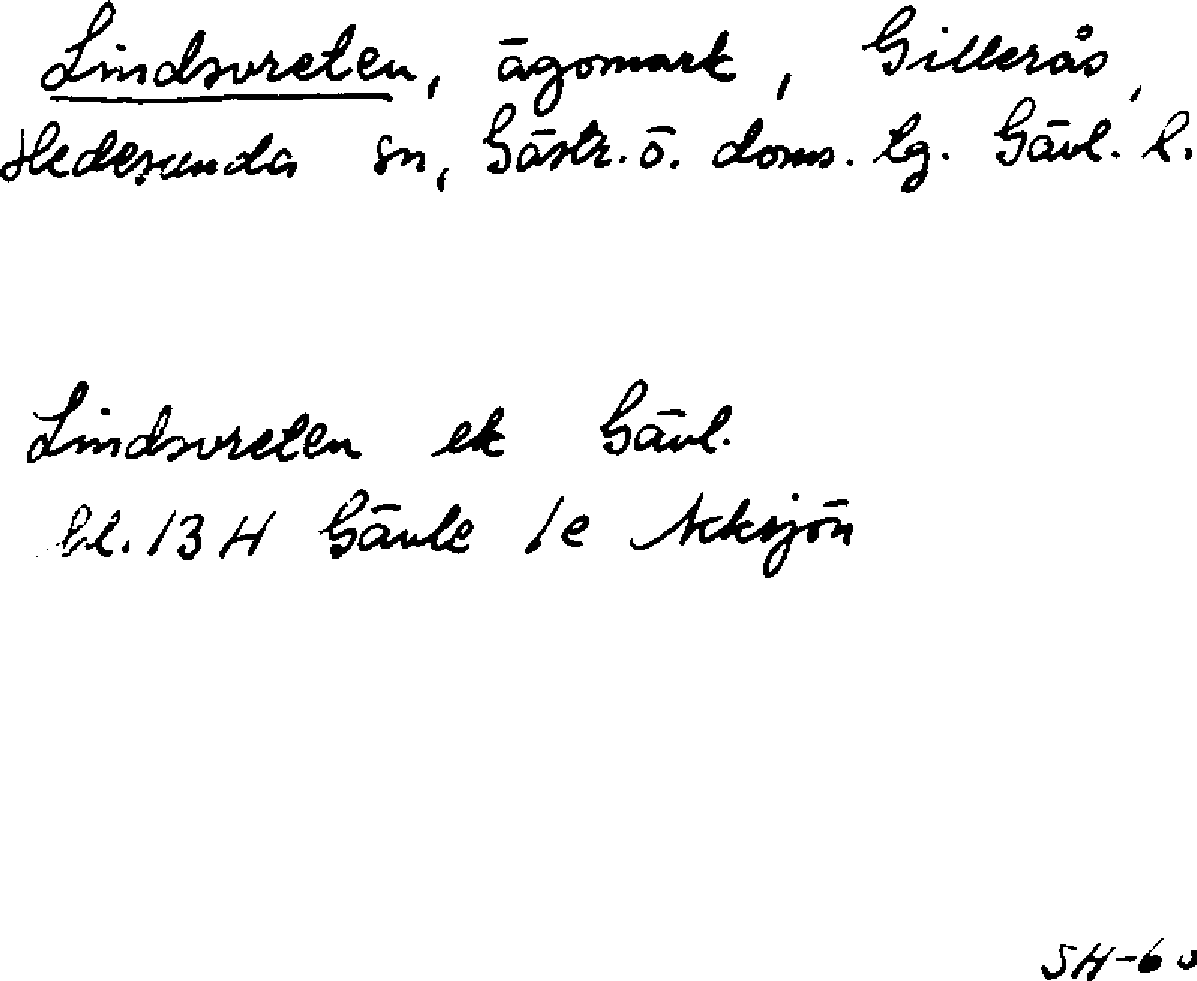 Lindsvreten, ägomark, Gillerås,
Hedesunda sn, Gästr. ö. doms. lg. Gävl. l.
Lindsvreten ek Gävl.
bl. 13 H Gävle 1e Akksjön
SH-60